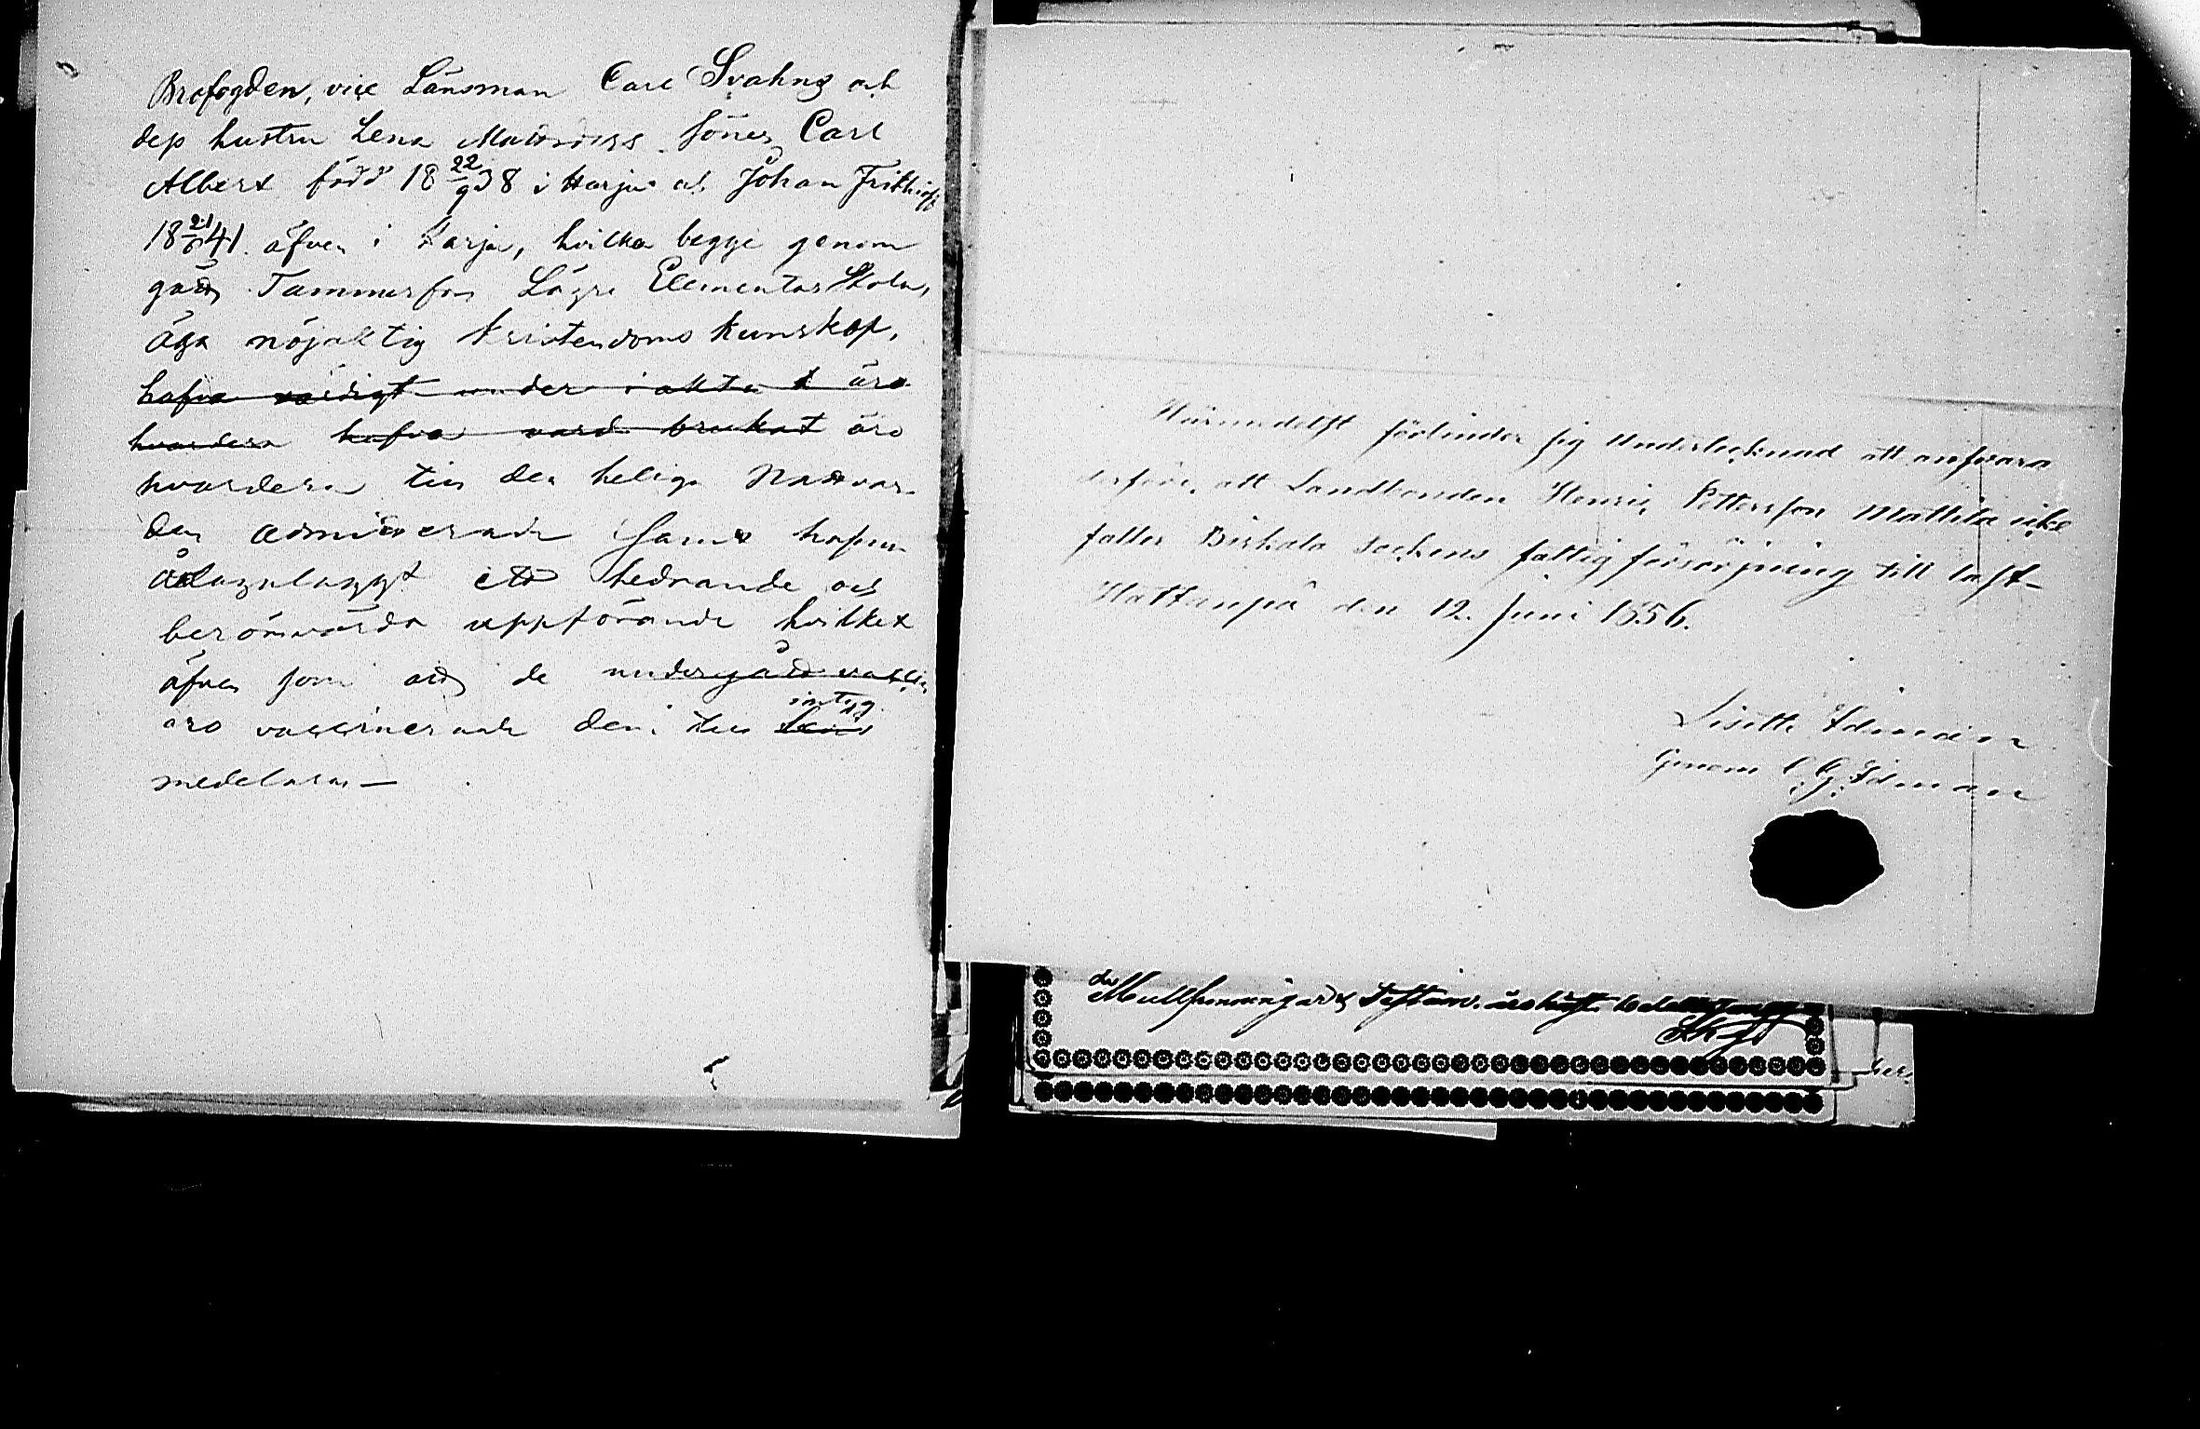 Brofogden, vice Länsman Carl Svahns och
dess hustru Lena Söner, Carl
Albert född 18 22/9 38 i Harju och Johan Frithiof
18 21/6 41. äfven i Harju, hvilka begge genom
gått Tammerfors Lägre Elementar Skola,
äga nöjaktig Kristendoms kunskap,
hafva värdigt under i akta & äro
hvardera hafva vard brukat äro
hvardera till den heliga Nattvar
den admitterade samt hafva
ådagalaggt ett hedrande och
berömvärdt uppförande hvilket
äfven som att de undergått vaccin
äro vaccinerade dem till intyg
meddelas —
Härmedelst förbinder sig Undertecknad att ansvara
derföre, att Landbonden Henric Pettersson Mattila icke
faller Birkala sockens fattigförsörjning till last_
Hattanpä den 12. Juni 1856.
Lisette Idman
Genom C. G. Idman
de Mullspenningar & Testam. äro